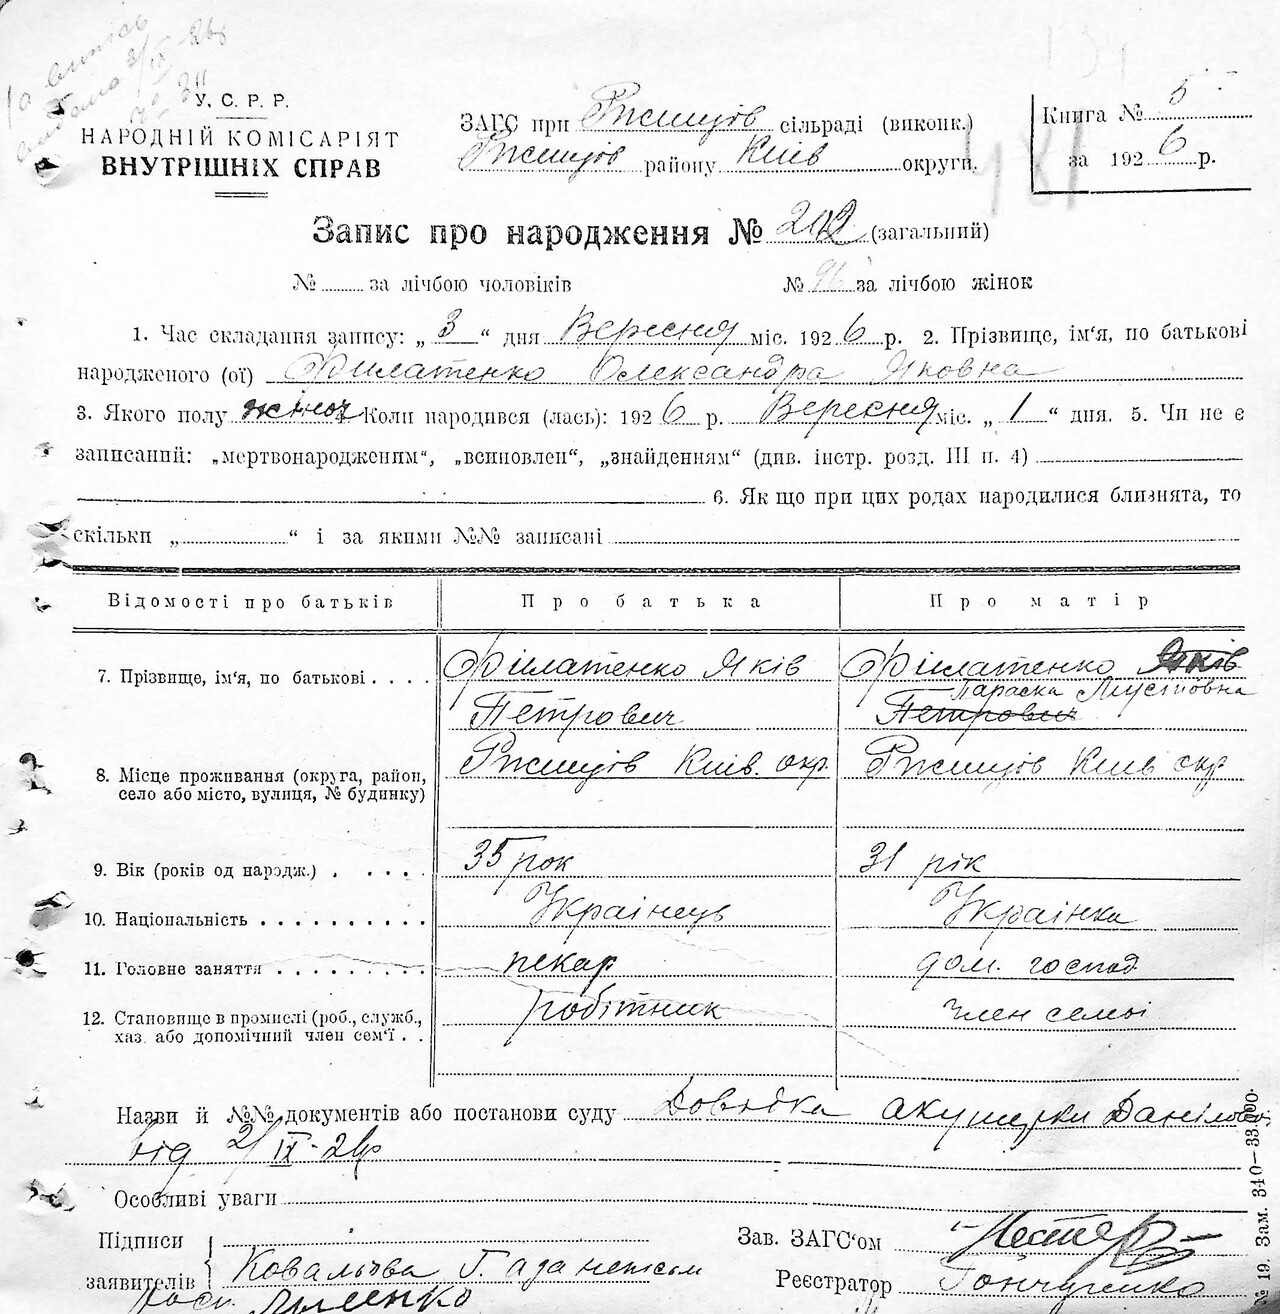 У. С. Р. Р.
НАРОДНІЙ КОМІСАРІЯТ
ВНУТРІШНІХ СПРАВ
ЗАГС при Ржищів сільраді (виконк.)
Ржищів району Київ округи.
Книга № 5
за 1926 р.
Запис про народження № 202 (загальний)
№ за лічбою чоловіків № 96 за лічбою жінок
1. Час складання запису: „3“ дня Вересня міс. 1926 р. 2. Прізвище, ім'я, по батькові
народженого (ої) Філатенко Олександра Яковна
3. Якого полу жіноч Коли народився (лась): 1926 р. Вересня міс. „1“ дня. 5. Чи не є
записаний: „мертвонародженим“, „всиновлен“, „знайденням“ (див. інстр. розд. III п. 4)
6. Як що при цих родах народилися близнята, то
скільки „ “ і за якими №№ записані
Відомості про батьків Про батька Про матір
7. Прізвище, ім'я, по батькові Філатенко Яків Філатенко Яків
Параска
Петрович Петрович
8. Місце проживання (округа, район, село або місто, вулиця, № будинку) Ржищів Київ. окр. Ржищів Київ окр
9. Вік (років од народж.) 35 рок 31 рік
10. Національність Українець Українка
11. Головне заняття пекар дом. господ
12. Становище в промислі (роб., служб., хаз. або допомічний член сем'ї робітник член семьі
Назви й №№ документів або постанови суду Довідка акушерки Данілово
від 2/IX-26р
Особливі уваги
Підписи
заявителів
Зав. ЗАГС'ом
Реєстратор Гончаренко
№ 19. Зам. 340—33.000.